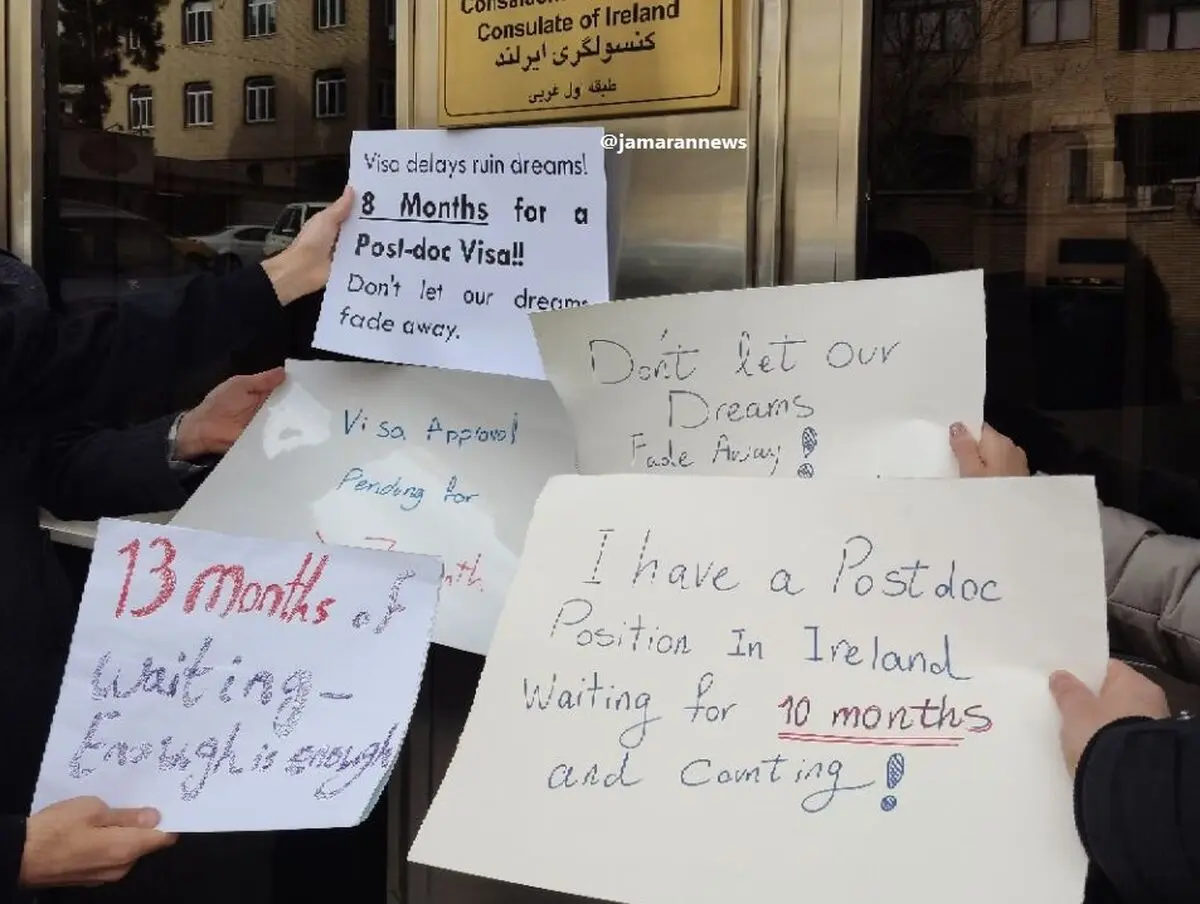 Consulate of Ireland
کنسولگری ایرلند
طبقه اول غربی
@jamarannews
Visa delays ruin dreams!
8 Months for a
Post-doc Visa!!
Don't let our dreams
fade away.
Don't let our
Dreams
Fade Away!
Visa Approval
Pending for
13 months of
waiting-
Enough is enough
I have a Postdoc
Position In Ireland
Waiting for 10 months
and Counting!